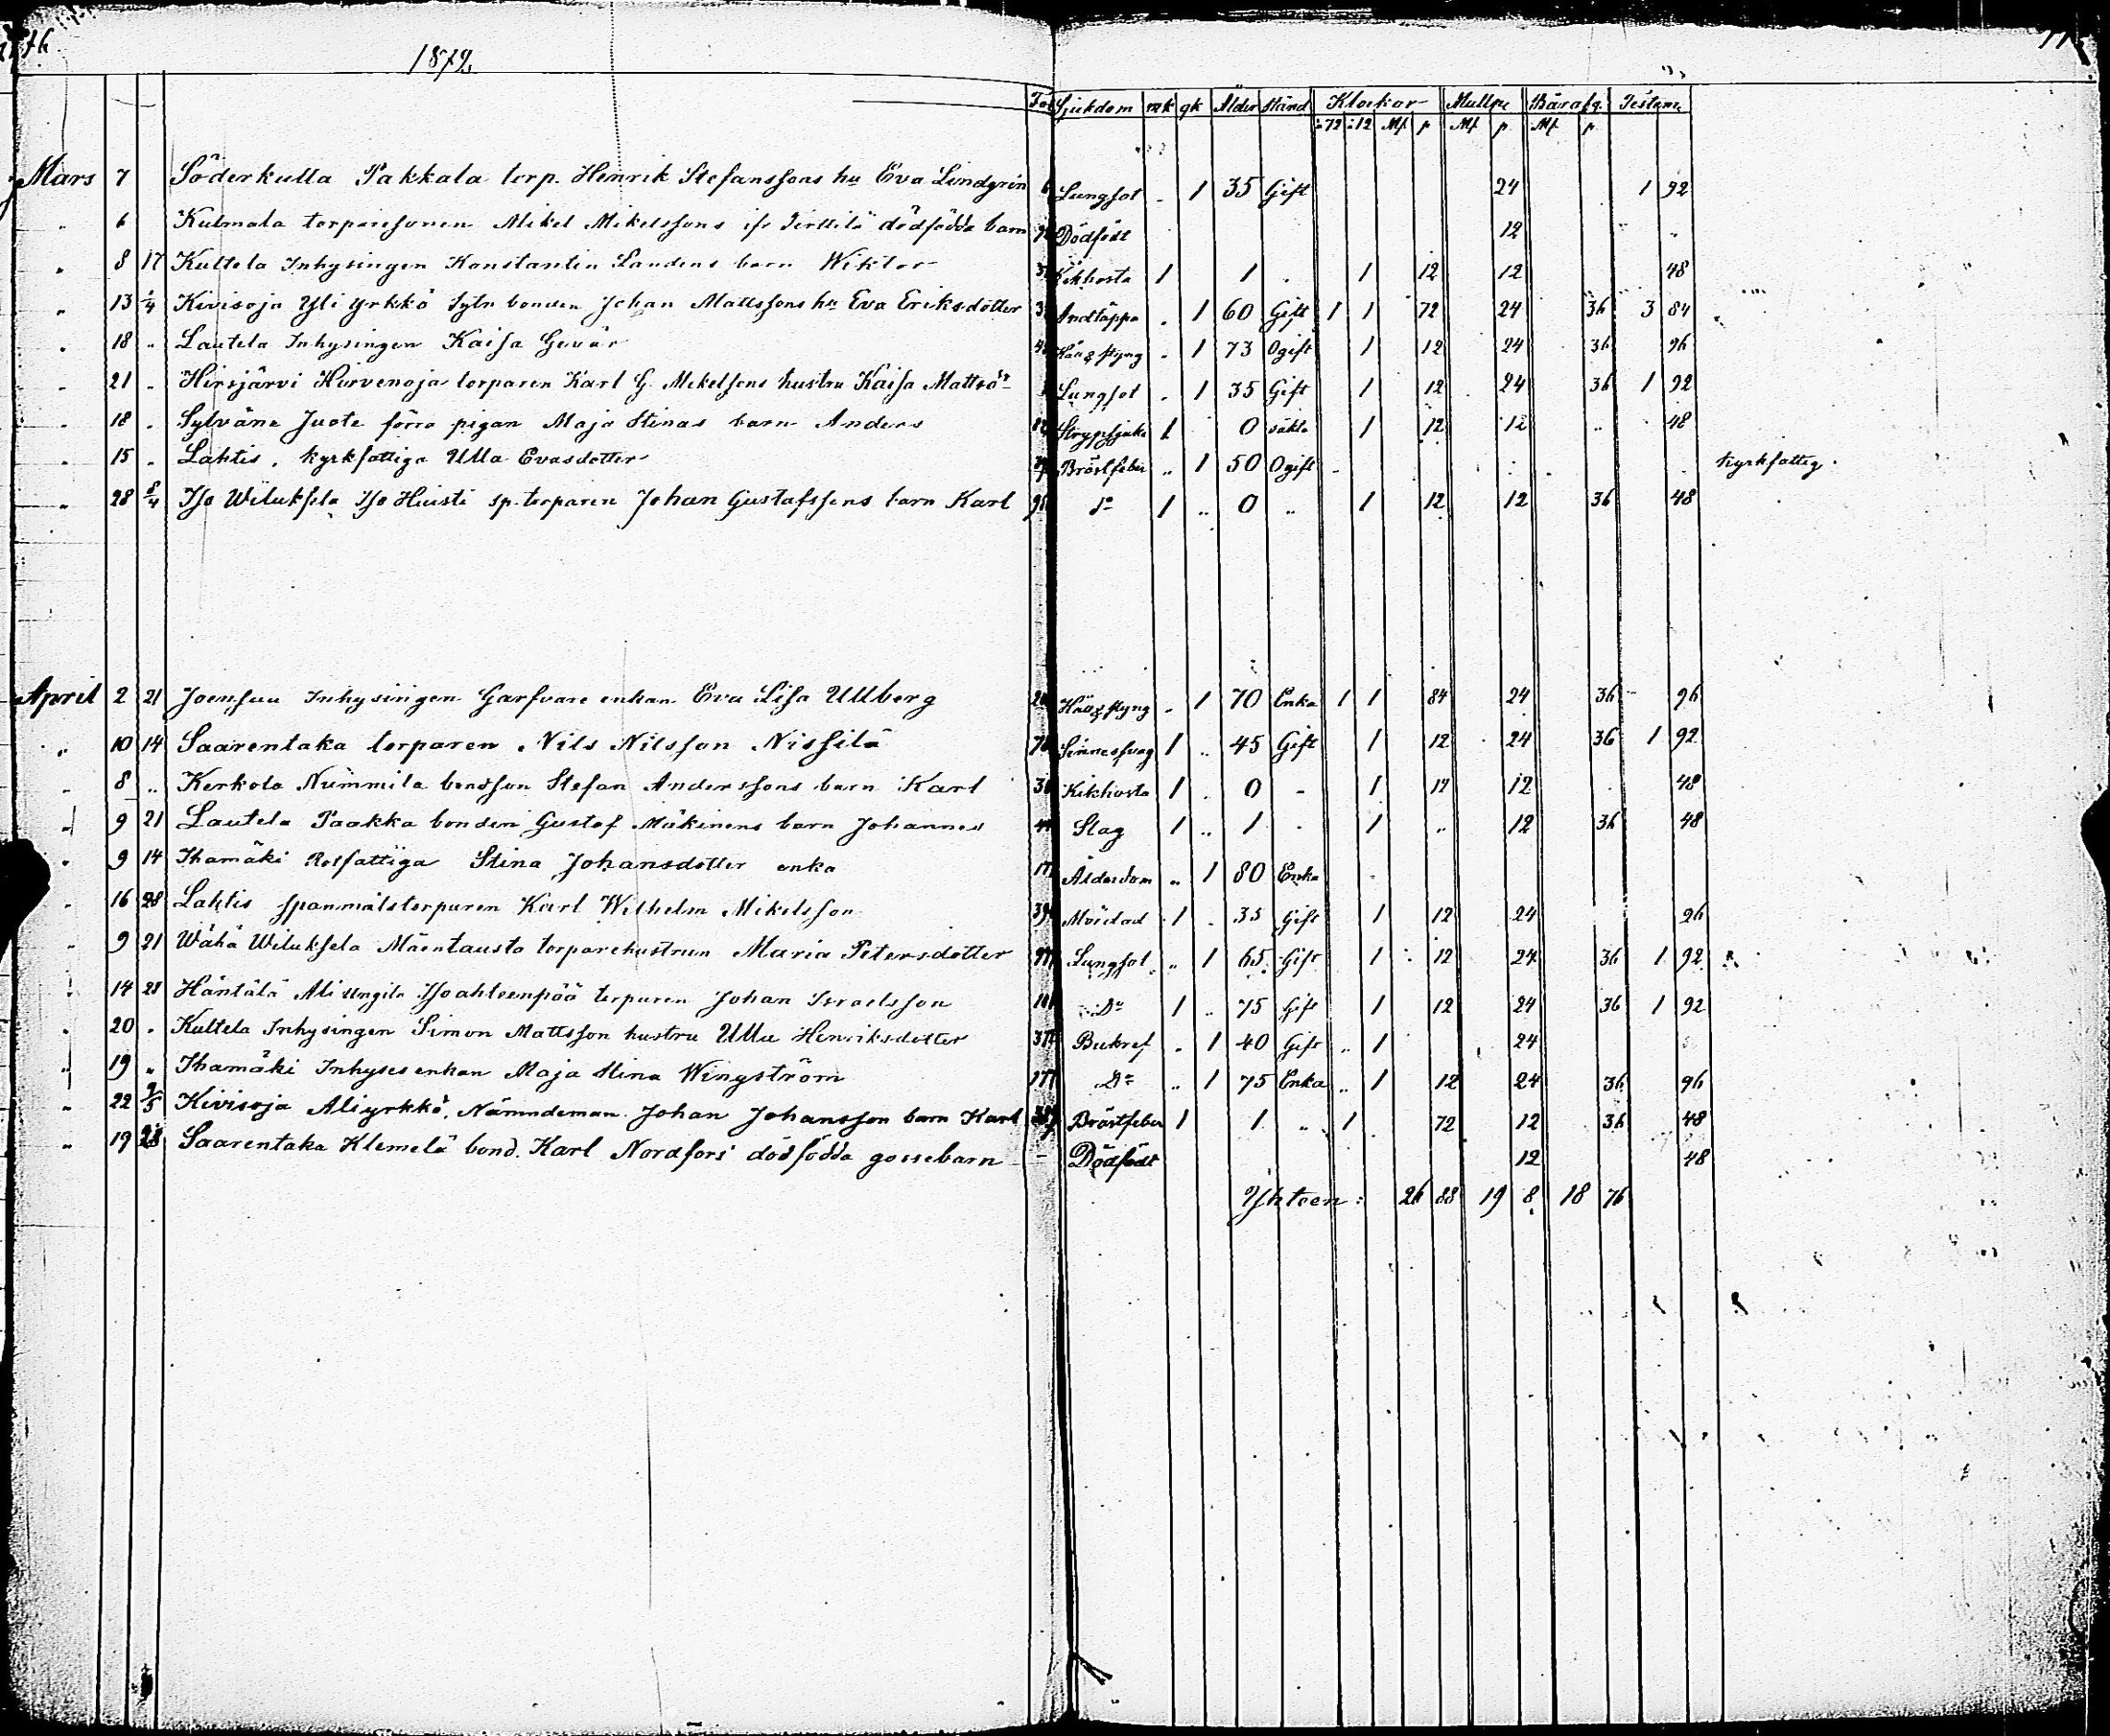 1872
Sjukdom mk qk Ålder stånd Klockor Mullpe Bärafg. Testam
:72 :12 Mk p Mk p Mk p
Mars 7 Söderkulla Pakkala torp. Henrik Stefanssons hu Eva Lindgrén Lungsot 1 35 Gift 24 1 92
" 6 Kulmala torparesonen Mikel Mikelssons dödfödda barn Dödfödt 12
" 8 17 Kultela Inhysingen Konstantin Landens barn Wiktor Kikhosta 1 1 1 12 12 48
" 13 1/4 Kivisoja Yli Yrkkö Sytn bonden Johan Mattssons hu Eva Eriksdotter Andtäppa 1 60 Gift 1 1 72 24 36 3 84
" 18 " Lautela Inhysingen Kaisa Gevär Håll & styng 1 73 Ogift 1 12 24 36 96
" 21 " Hirsjärvi Hirvenoja torparen Karl G. Mikelsons hustru Kaisa Lungsot 1 35 Gift 1 12 24 36 1 92
" 18 " Sylväne Juote förra pigan Maja Stinas barn Anders Strypsjuka 1 0 oäkta 1 12 12 48
" 15 " Lahtis, kyrkfattiga Ulla Evasdotter Bröstfeber " 1 50 Ogift kyrkfattig.
" 28 8/4 Iso Wiluksela Iso Huisti sp. torparen Johan Gustafssons barn Karl Do 1 " 0 " 1 12 12 36 48
April 2 21 Joensuu Inhysingen Garfvare enkan Eva Lisa Ullberg Håll & styng 1 70 Enka 1 1 84 24 36 96
" 10 14 Saarentaka torparen Nils Nilsson Nissilä Sinnessvag 1 " 45 Gift 1 12 24 36 1 92
" 8 " Kerkola Nummila bondson Stefan Anderssons barn Karl Kikhosta 1 0 1 12 12 48
" 9 21 Lautela Paakka bonden Gustaf Mäkinens barn Johannes Slag 1 " 1 1 " 12 36 48
" 9 14 Ihamäki Rotfattiga Stina Johansdotter enka Ålderdom " 1 80 Enka
" 16 28 Lahtis spanmålstorparen Karl Wilhelm Mikelsson Mördad 1 35 Gift 1 12 24 96
" 9 21 Wähä Wiluksela Mäentausta torparehustrun Maria Petersdotter Lungsot " 1 65 Gift 1 12 24 36 1 92
" 14 28 Häntälä Ali Ungila Isoahteenpää torparen Johan Israelsson Do 1 " 75 Gift 1 12 24 36 1 92
" 20 " Kultela Inhysingen Simon Mattsson hustru Ulla Henriksdotter Bukref " 1 40 Gift " 1 24
" 19 " Ihamäki Inhyses enkan Maja Stina Wingström Do " 1 75 Enka " 1 12 24 36 96
" 22 9/5 Kivisoja Aliyrkkö, Nämndeman Johan Johansson barn Karl Bröstfeber 1 1 " 1 72 12 36 48
" 19 28 Saarentaka Klemelä bond. Karl Nordfors dödfödda gossebarn Dödfödt 12 48
Yhteen: 26 88 19 8 18 76